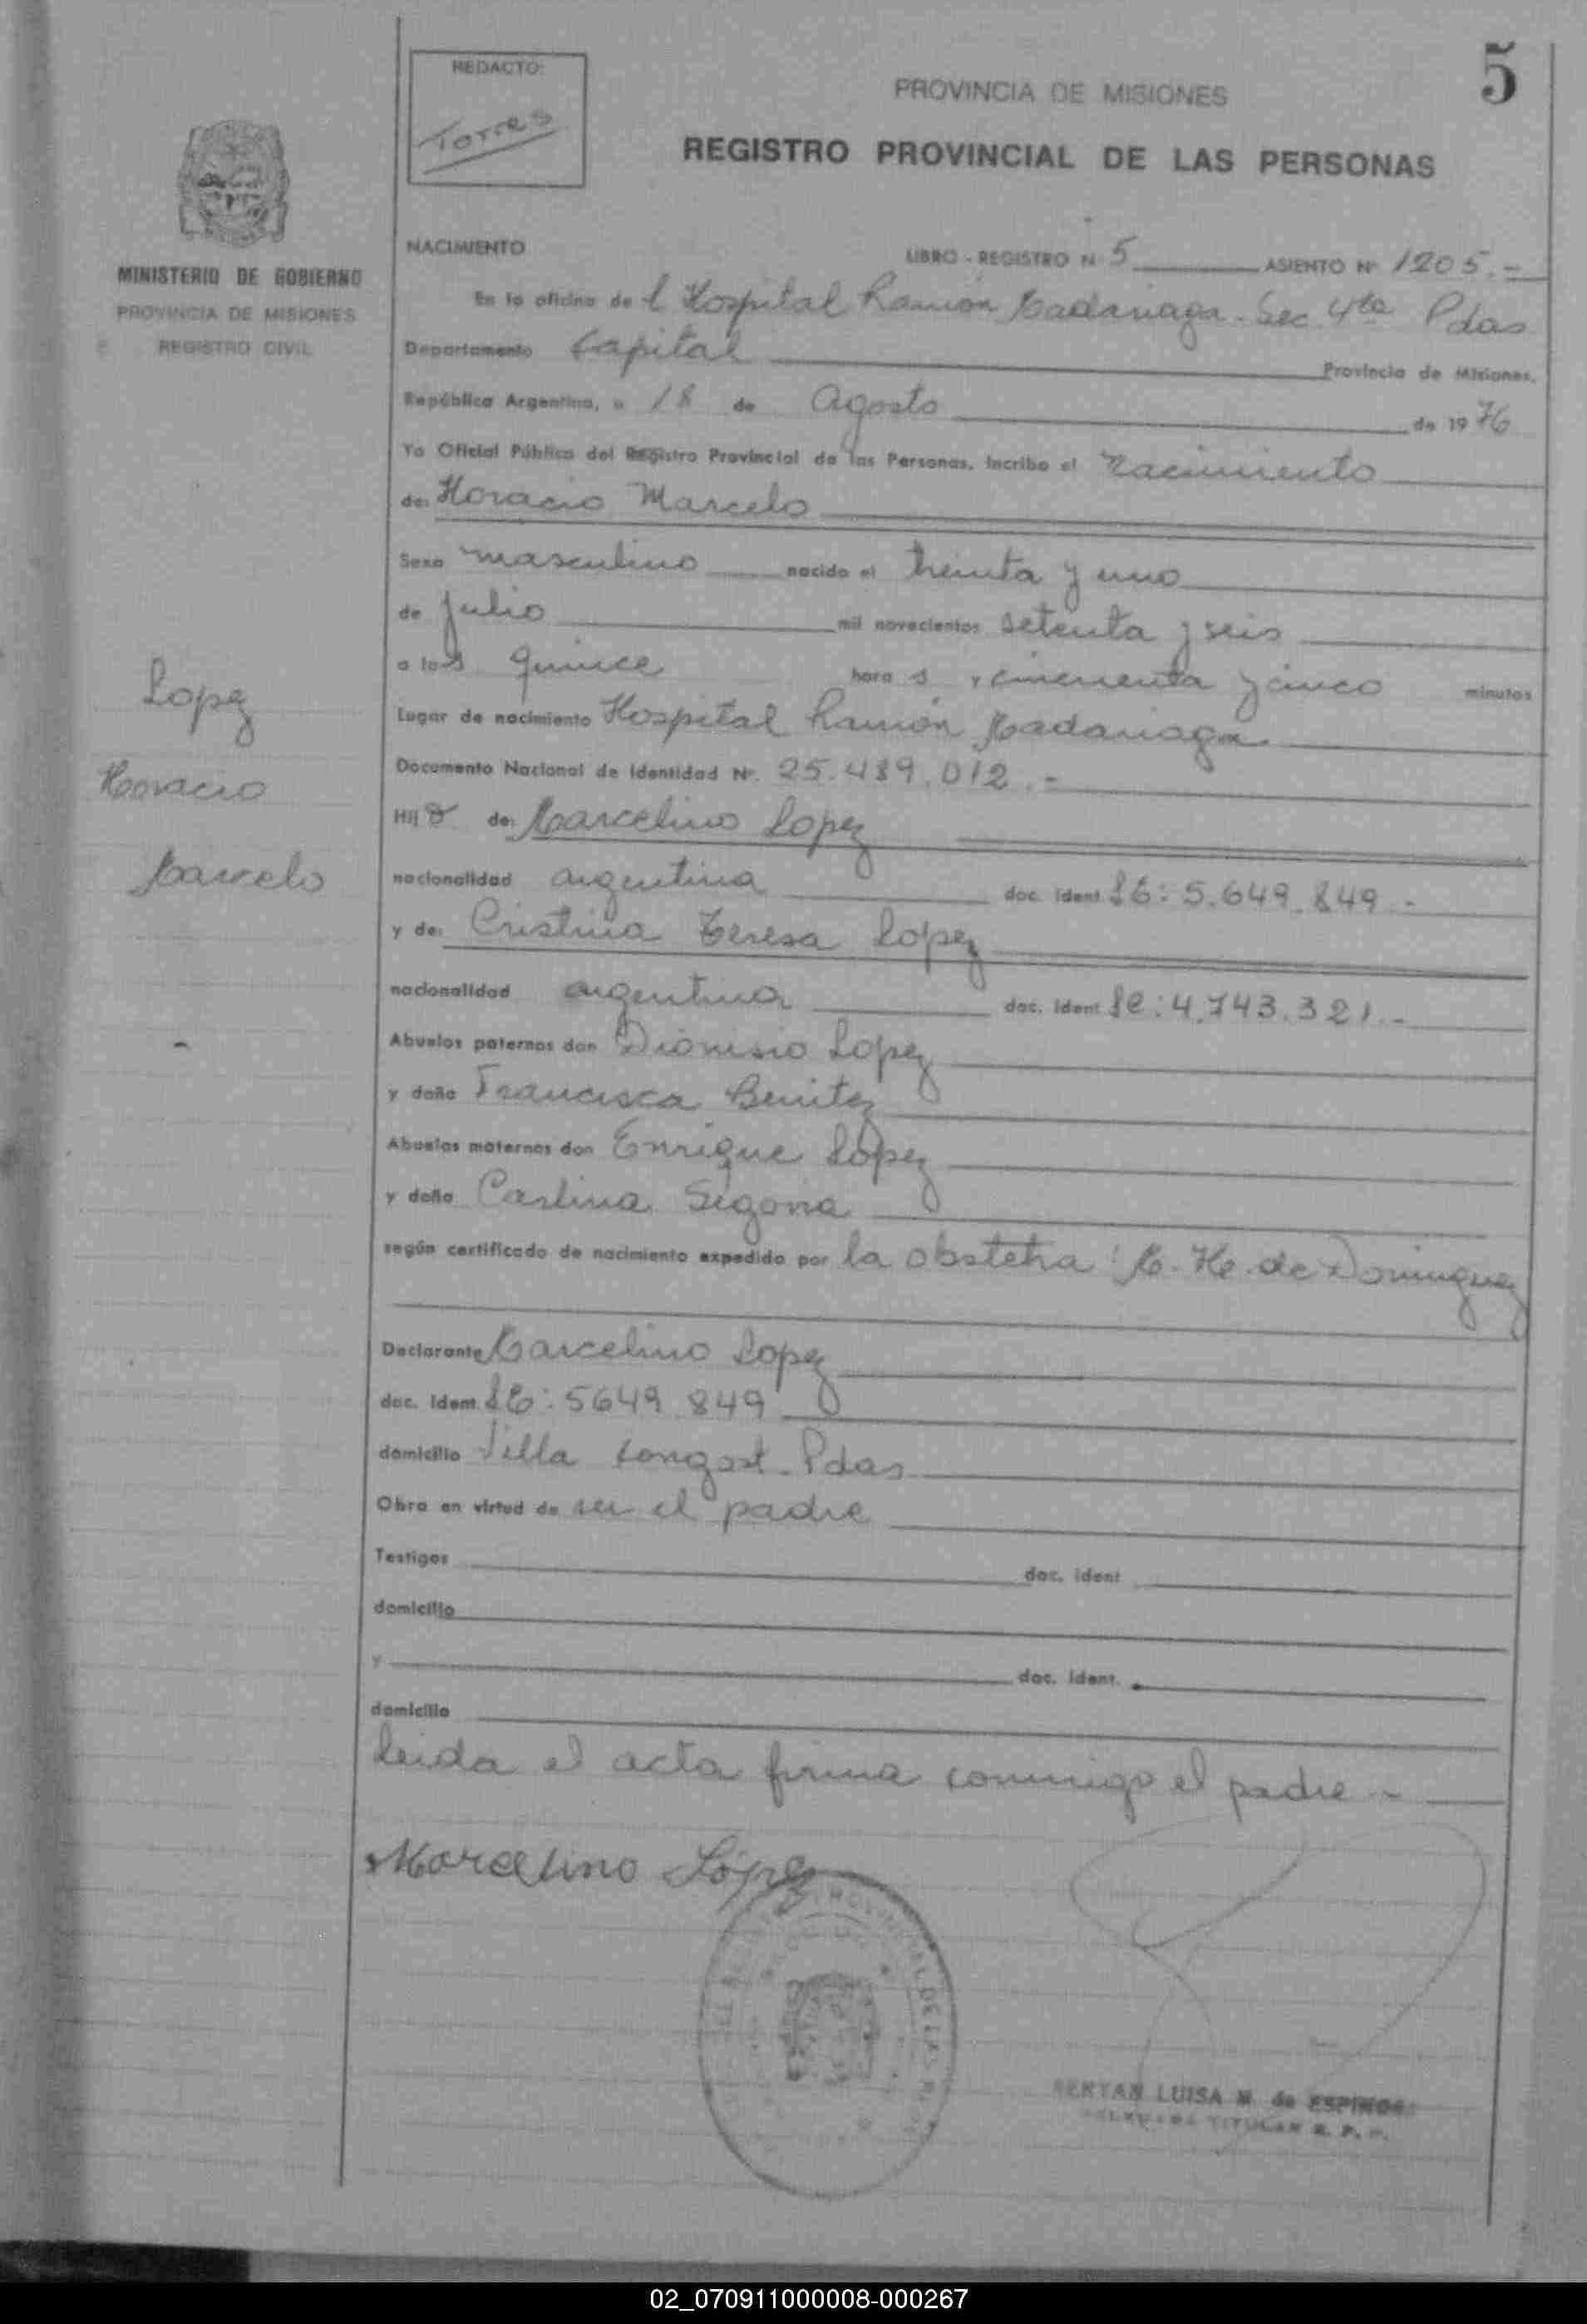 5
REDACTO:
Torres
PROVINCIA DE MISIONES
REGISTRO PROVINCIAL DE LAS PERSONAS
MINISTERIO DE GOBIERNO
PROVINCIA DE MISIONES
REGISTRO CIVIL
NACIMIENTO LIBRO - REGISTRO N 5 ASIENTO Nº 1205.-
En la oficina del Hospital Ramón Madariaga - Sec. 4ta Pdas
Departamento Capital Provincia de Misiones,
República Argentina, a 18 de Agosto de 1976
Yo Oficial Público del Registro Provincial de las Personas, Incribo el Nacimiento
de: Horacio Marcelo
Sexo masculino nacido el treinta y uno
de julio mil novecientos setenta y seis
a las quince hora s y cincuenta y cinco minutos
Lugar de nacimiento Hospital Ramón Madariaga
Documento Nacional de Identidad Nº. 25.489.012.-
Hijo de: Marcelino Lopez
nacionalidad argentina doc. ident. LE: 5.649.849.-
y de: Cristina Teresa Lopez
nacionalidad argentina doc. ident. Lc: 4.743.321.-
Abuelos paternos don Dionisio Lopez
y doña Francisca Benitez
Abuelos maternos don Enrique Lopez
y doña Caslina Segovia
según certificado de nacimiento expedido por la obstetra: M. He. de Dominguez
Declarante Marcelino Lopez
doc. ident. LE: 5649.849
domicilio Villa Longost. Pdas
Obra en virtud de ser el padre
Testigos doc. ident
domicilio
y doc. ident.
domicilio
leida el acta firma conmigo el padre -
Marcelino López
Lopez
Horacio
Marcelo
LUISA M. de ESPINOSA
TITULAR R. P. P.
02_070911000008-000267